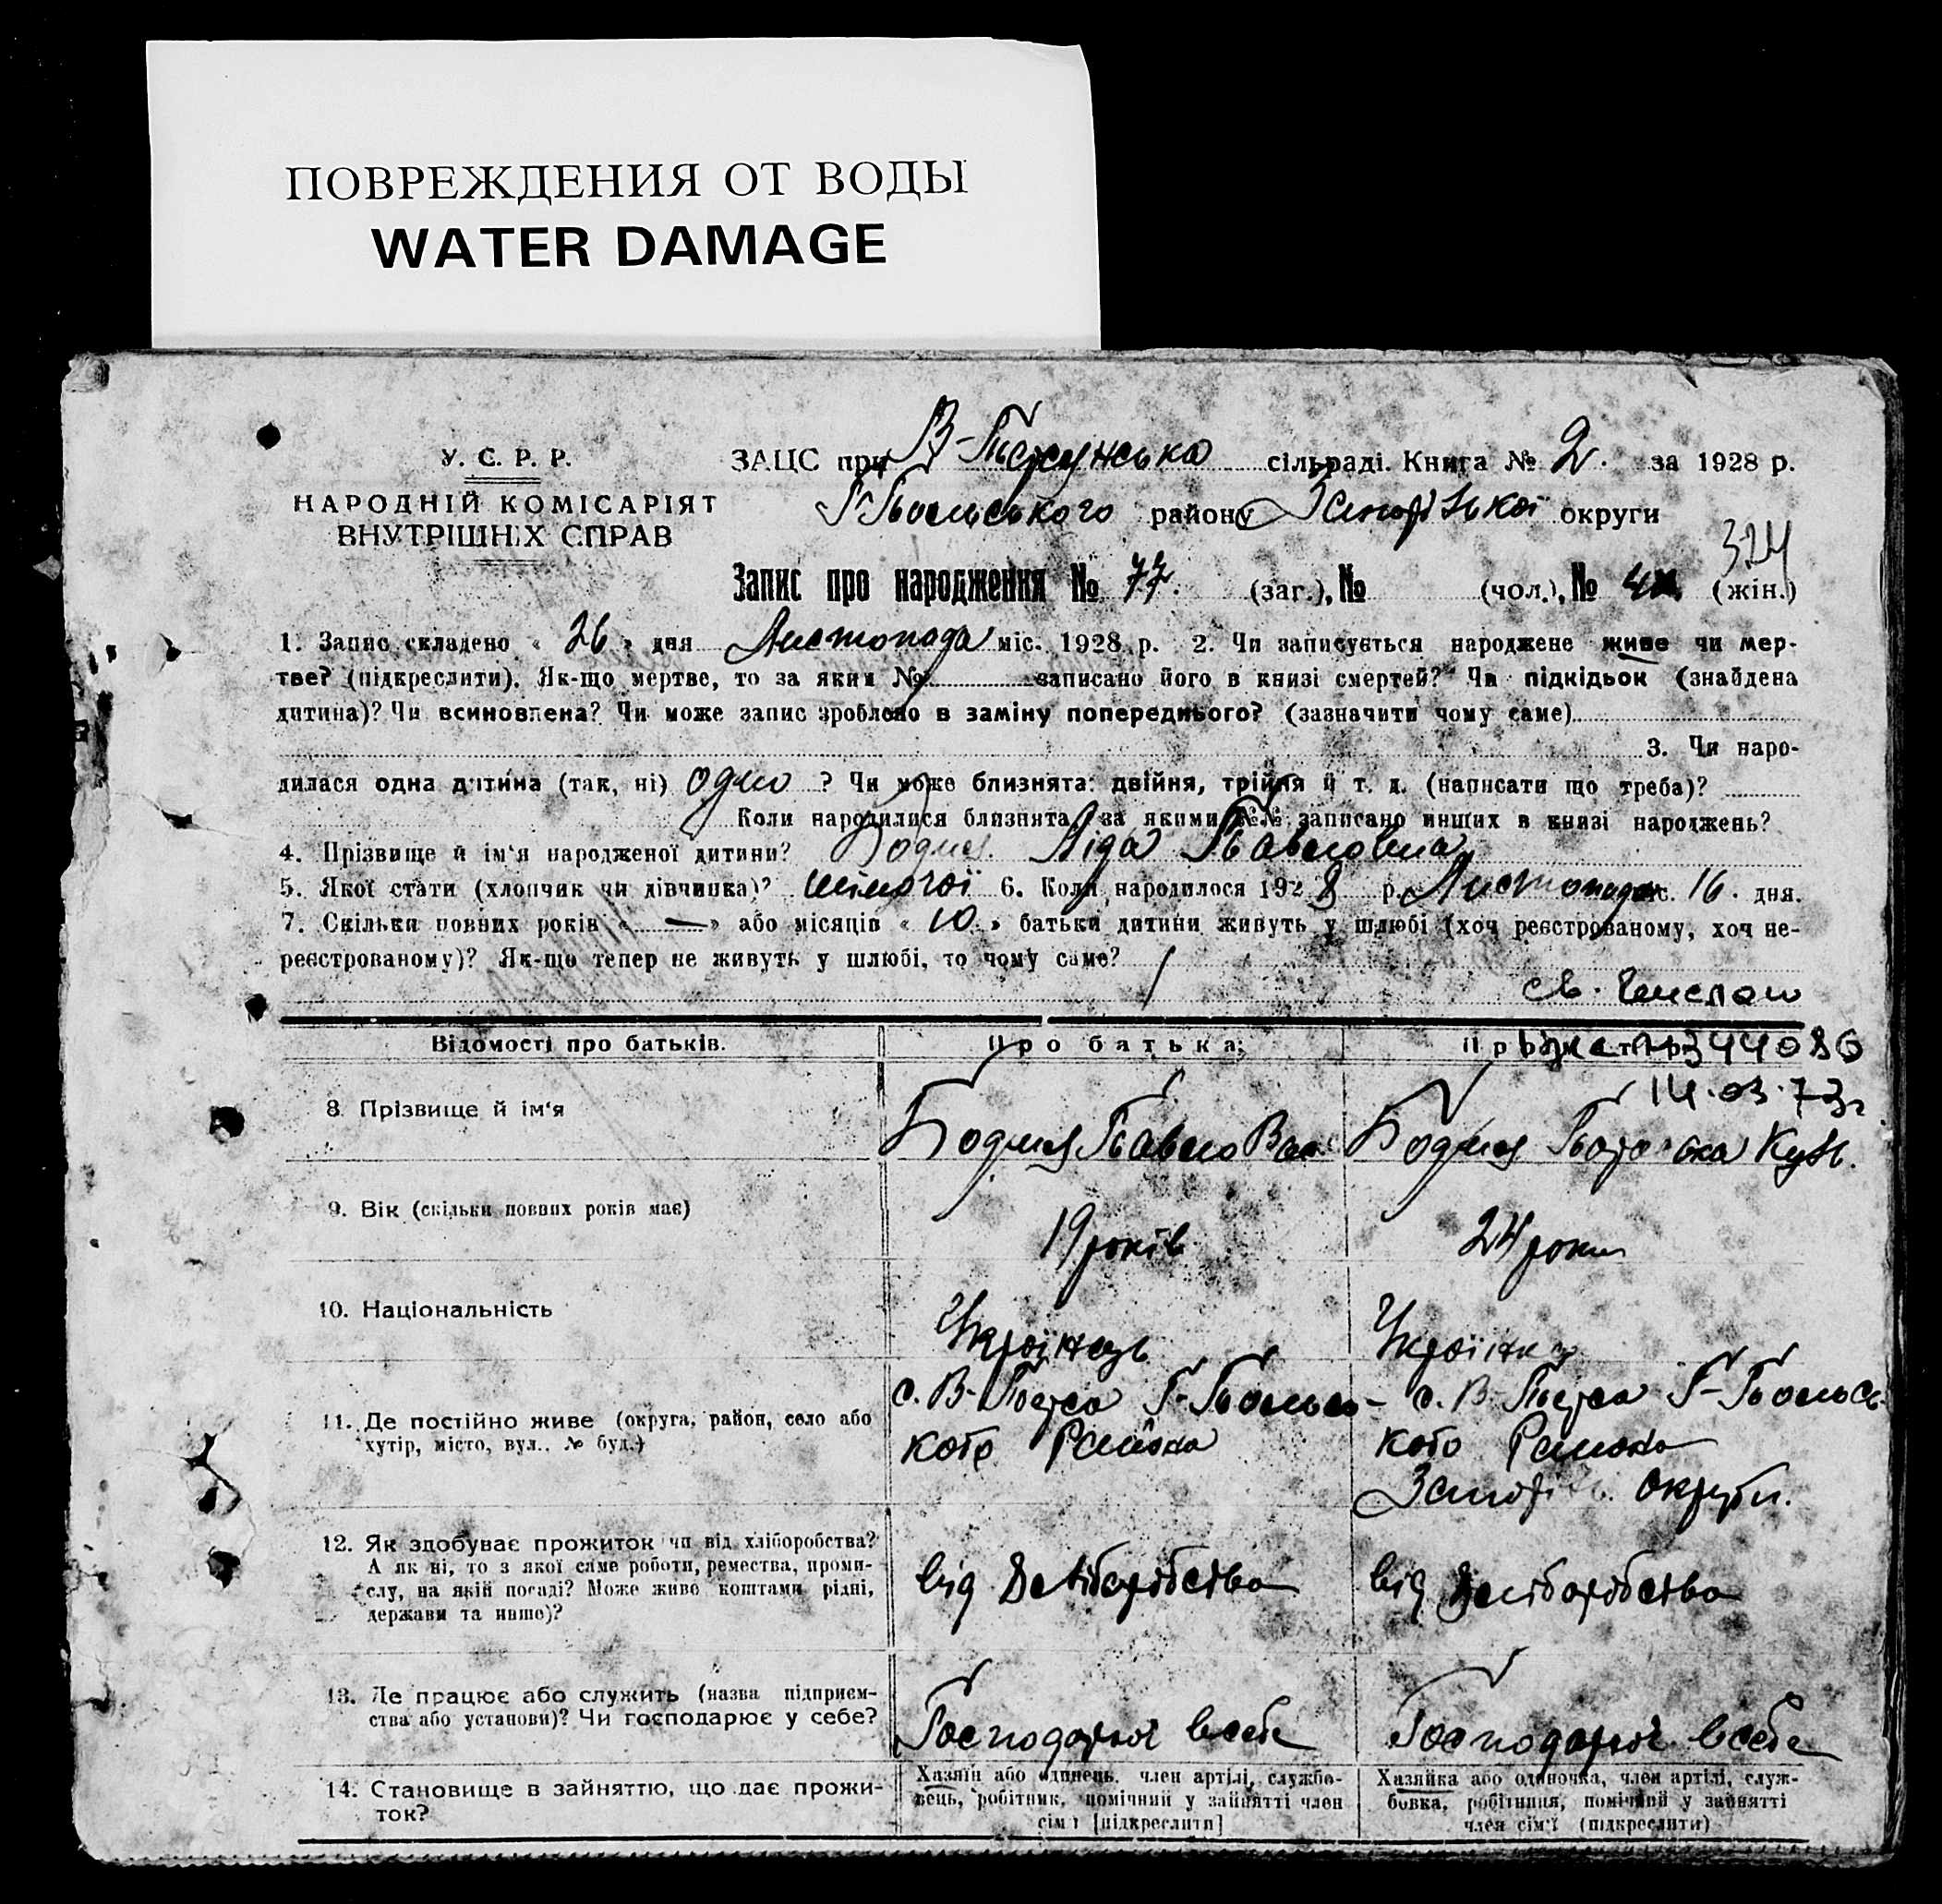 ПОВРЕЖДЕНИЯ ОТ ВОДЫ
WATER DAMAGE
У. С. Р. Р.
НАРОДНІЙ КОМІСАРІЯТ
ВНУТРІШНІХ СПРАВ
ЗАЦС при сільраді. Книга № 2. за 1928 р.
району округи
324
Запис про народження № 77. (заг.), № (чол.), № (жін.)
1. Запис складено « 26 » дня Листопада міс. 1928 р. 2. Чи записується народжене живе чи мер-
тве? (підкреслити). Як-що мертве, то за яким № записано його в книзі смертей? Чи підкідьок (знайдена
дитина)? Чи всиновлена? Чи може запис зроблено в заміну попереднього? (зазначити чому саме)
3. Чи наро-
дилася одна дитина (так, ні) одно ? Чи може близнята: двійня, трійня й т. д. (написати що треба)?
Коли народилися близнята, за якими №№ записано инших в книзі народжень?
4. Прізвище й ім'я народженої дитини? Бодня Ліда Павловна
5. Якої стати (хлопчик чи дівчинка)? жіночої 6. Коли народилося 1928 р. Листопада міс. 16. дня.
7. Скільки повних років « — » або місяців « 10 » батьки дитини живуть у шлюбі (хоч реєстрованому, хоч не-
реєстрованому)? Як-що тепер не живуть у шлюбі, то чому саме?
Відомості про батьків. Про батька: 344086
14.03.73г
8. Прізвище й ім'я Бодня Павло Вас. Бодня
9. Вік (скільки повних років має) 19 років 24 роки
10. Національність Українець Українка
11. Де постійно живе (округа, район, село або
хутір, місто, вул., № буд.)
кого Района кого Района
округи.
12. Як здобуває прожиток чи від хліборобства?
А як ні, то з якої саме роботи, ремества, проми-
слу, на якій посаді? Може живе коштами рідні,
держави та инше)?
від Хліборобства від Хліборобства
13. Де працює або служить (назва підприєм-
ства або установи)? Чи господарює у себе?
Господарює всебе Господарює всебе
14. Становище в зайняттю, що дає прожи-
ток?
Хазяїн або одинець, член артілі, службо-
вець, робітник, помічний у зайнятті член
сім'ї [підкреслити]
Хазяйка або одиночка, член артілі, служ-
бовка, робітниця, помічний у зайнятті
член сім'ї (підкреслити)